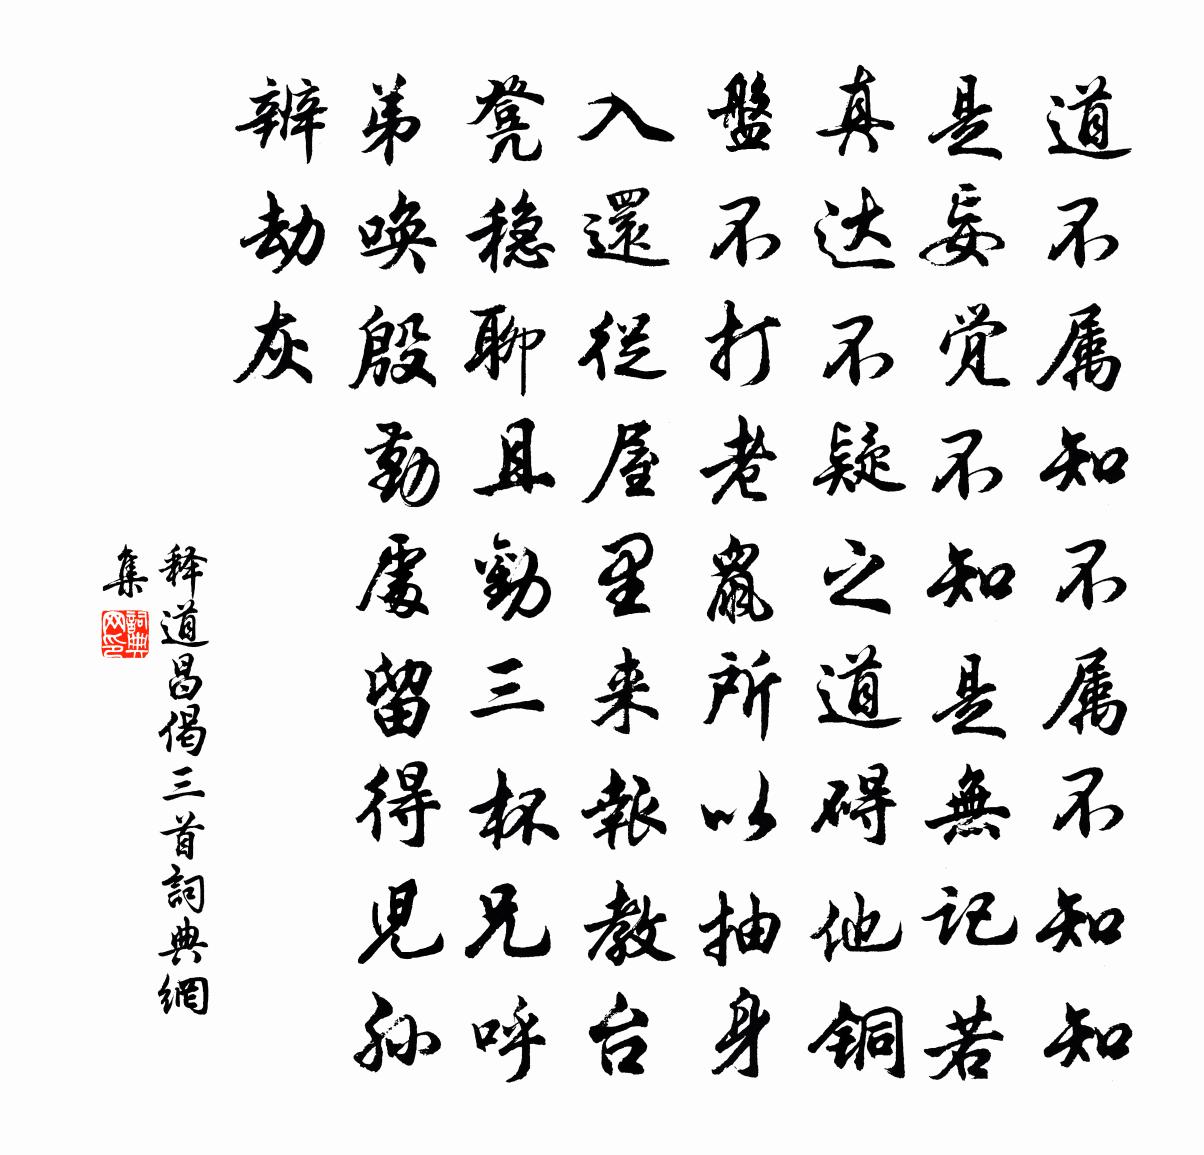 道不属知不属不知知
是妄觉不知是無记若
真达不疑之道碍他铜
盤不打老鼠所以抽身
入還從屋里来報教台
凳穏聊且勸三杯兄呼
弟唤殷勤處留得児孙
辨劫灰
释道昌偈三首詞典網
集
詞典
网印